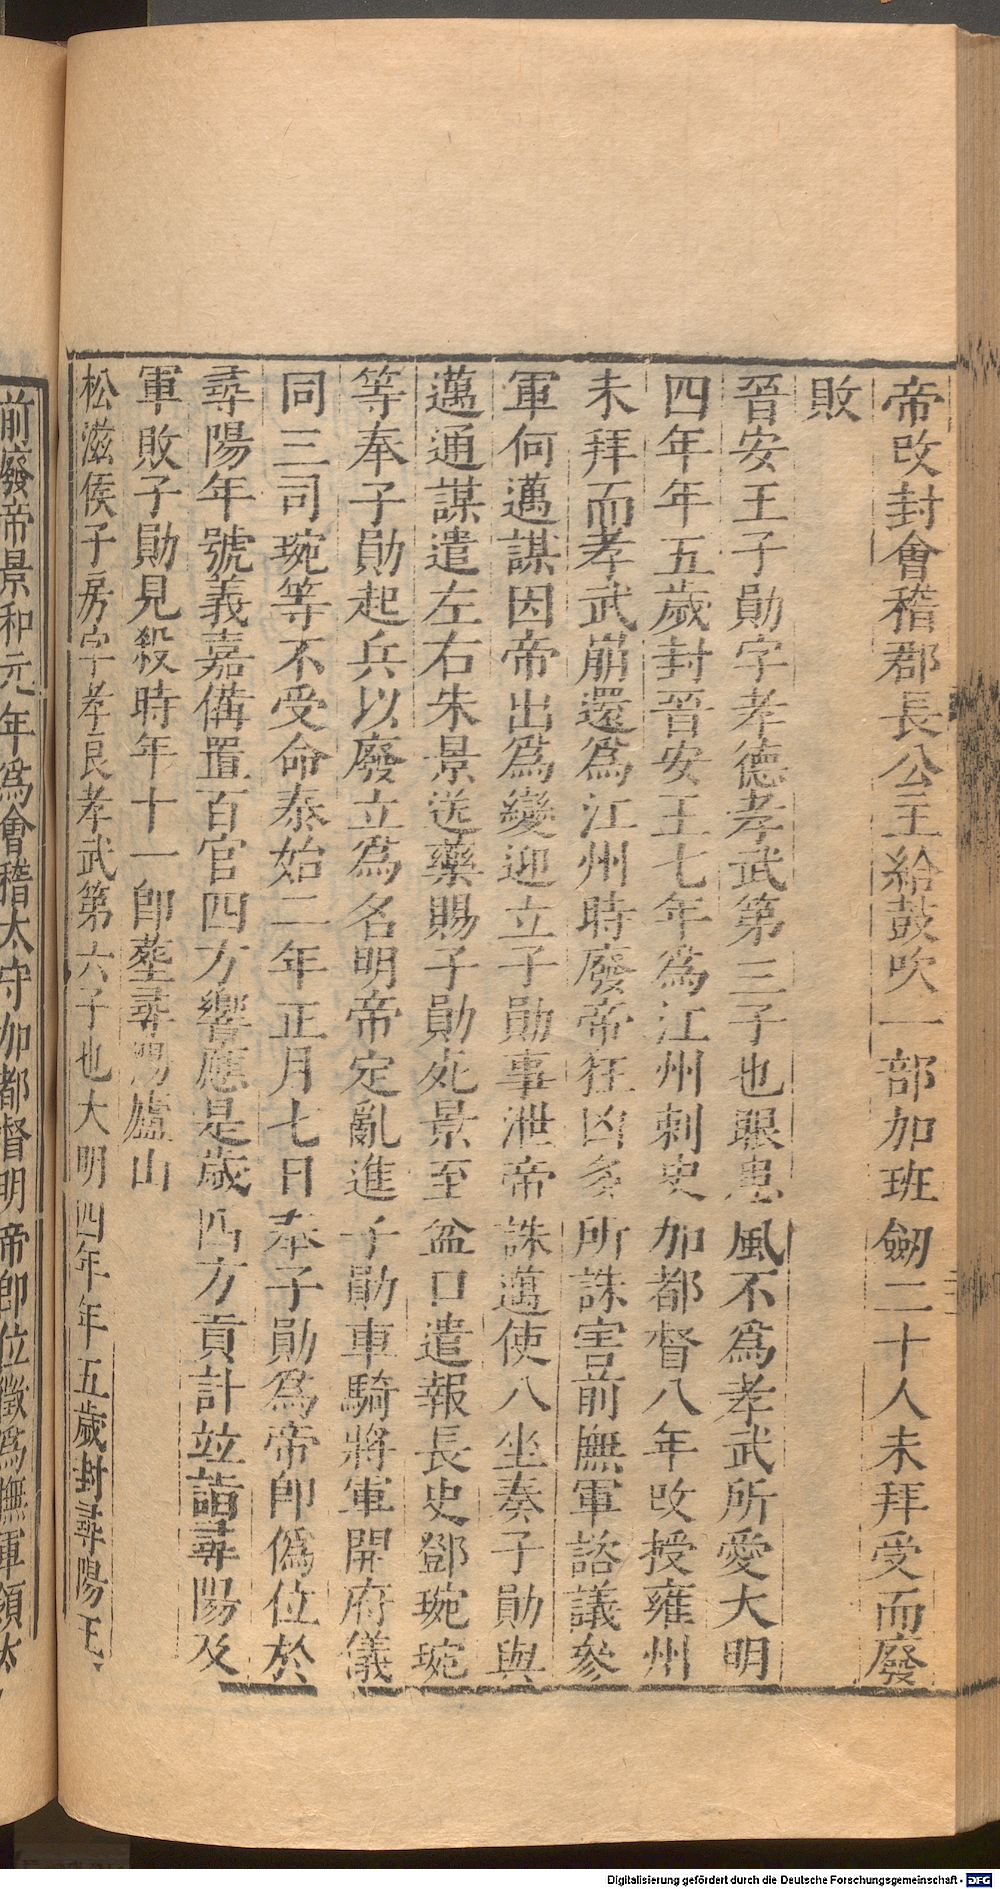 帝改封會稽郡長公主給鼓吹一部加班劒二十人未拜受而廢
敗
晉安王子勛字孝德孝武第三子也眼患風不爲孝武所愛大明
四年年五歲封晉安王七年爲江州刺史加都督八年改授雍州
未拜而孝武崩還爲江州時廢帝狂凶多所誅害前撫軍諮議參
軍何邁謀因帝出爲變迎立子勛事泄帝誅邁使八坐奏子勛與
邁通謀遣左右朱景送藥賜子勛死景至盆口遣報長史鄧琬琬
等奉子勛起兵以廢立爲名明帝定亂進子勛車騎將軍開府儀
同三司琬等不受命泰始二年正月七日奉子勛爲帝卽僞位於
尋陽年號義嘉備置百官四方響應是歲四方貢計竝詣尋陽及
軍敗子勛見殺時年十一卽葬尋陽廬山
松滋侯子房字孝良孝武第六子也大明四年年五歲封尋陽王
前廢帝景和元年爲會稽太守加都督明帝卽位徵爲撫軍領太
Digitalisierung gefördert durch die Deutsche Forschungsgemeinschaft - DFG